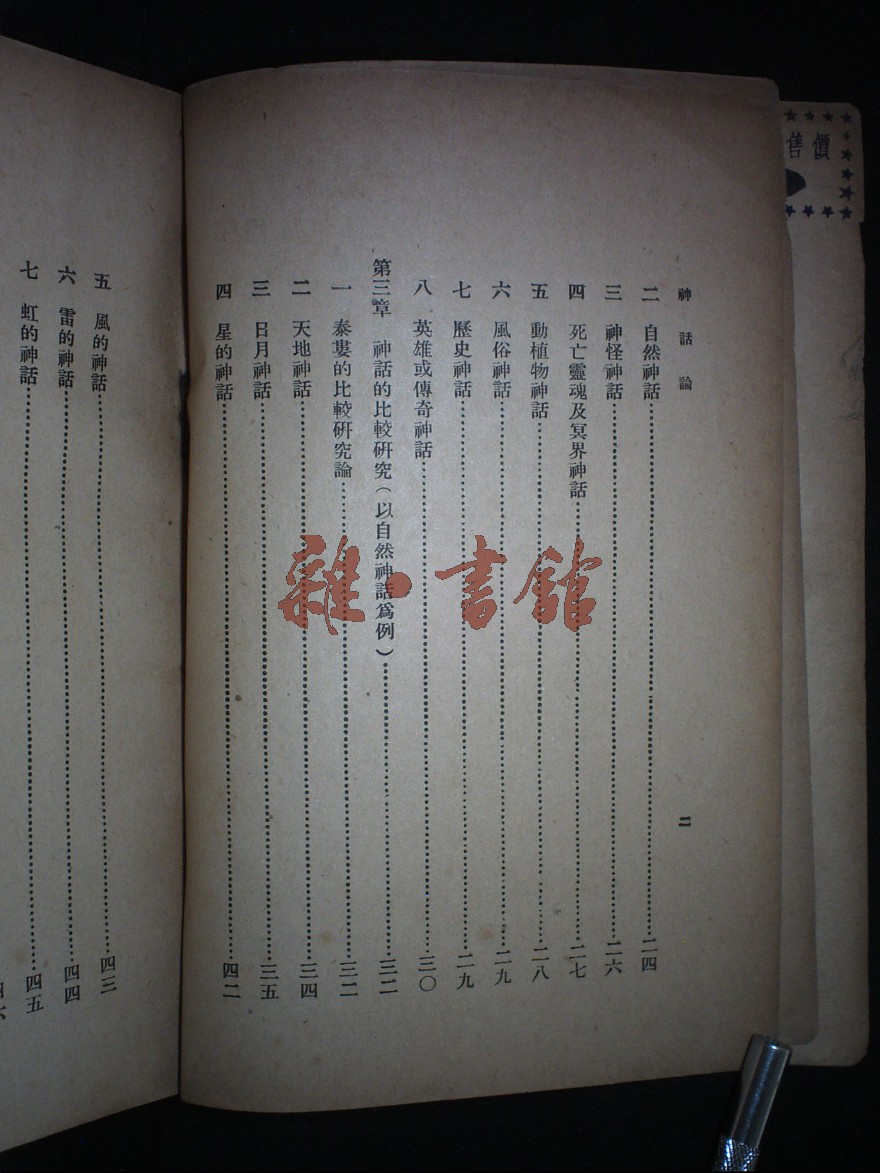 神話論
二　自然神話……二四
三　神怪神話……二六
四　死亡靈魂及冥界神話……二七
五　動植物神話……二八
六　風俗神話……二九
七　歷史神話……二九
八　英雄或傳奇神話……三〇
第三章　神話的比較研究（以自然神話爲例）……三二
一　泰婁的比較研究論……三二
二　天地神話……三四
三　日月神話……三五
四　星的神話……四二
二
五　風的神話……四三
六　雷的神話……四四
七　虹的神話……四五
售價
雜·書館